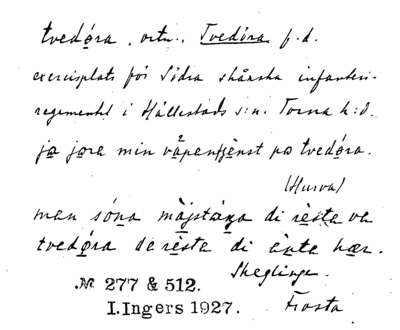 tvedo̤ra, ortn., Tvedöra f.d.
exercisplats för Södra skånska infanteri-
regementet i Hällestads s:n. Torna h:d.
ja jore min våpentjenst po tvedo̤ra.
(Hurva)
men sóna di reste ve
tvedo̤ra de reste di ente hær.
Skeglinge.
№ 277 & 512.
I. Ingers 1927. Frosta